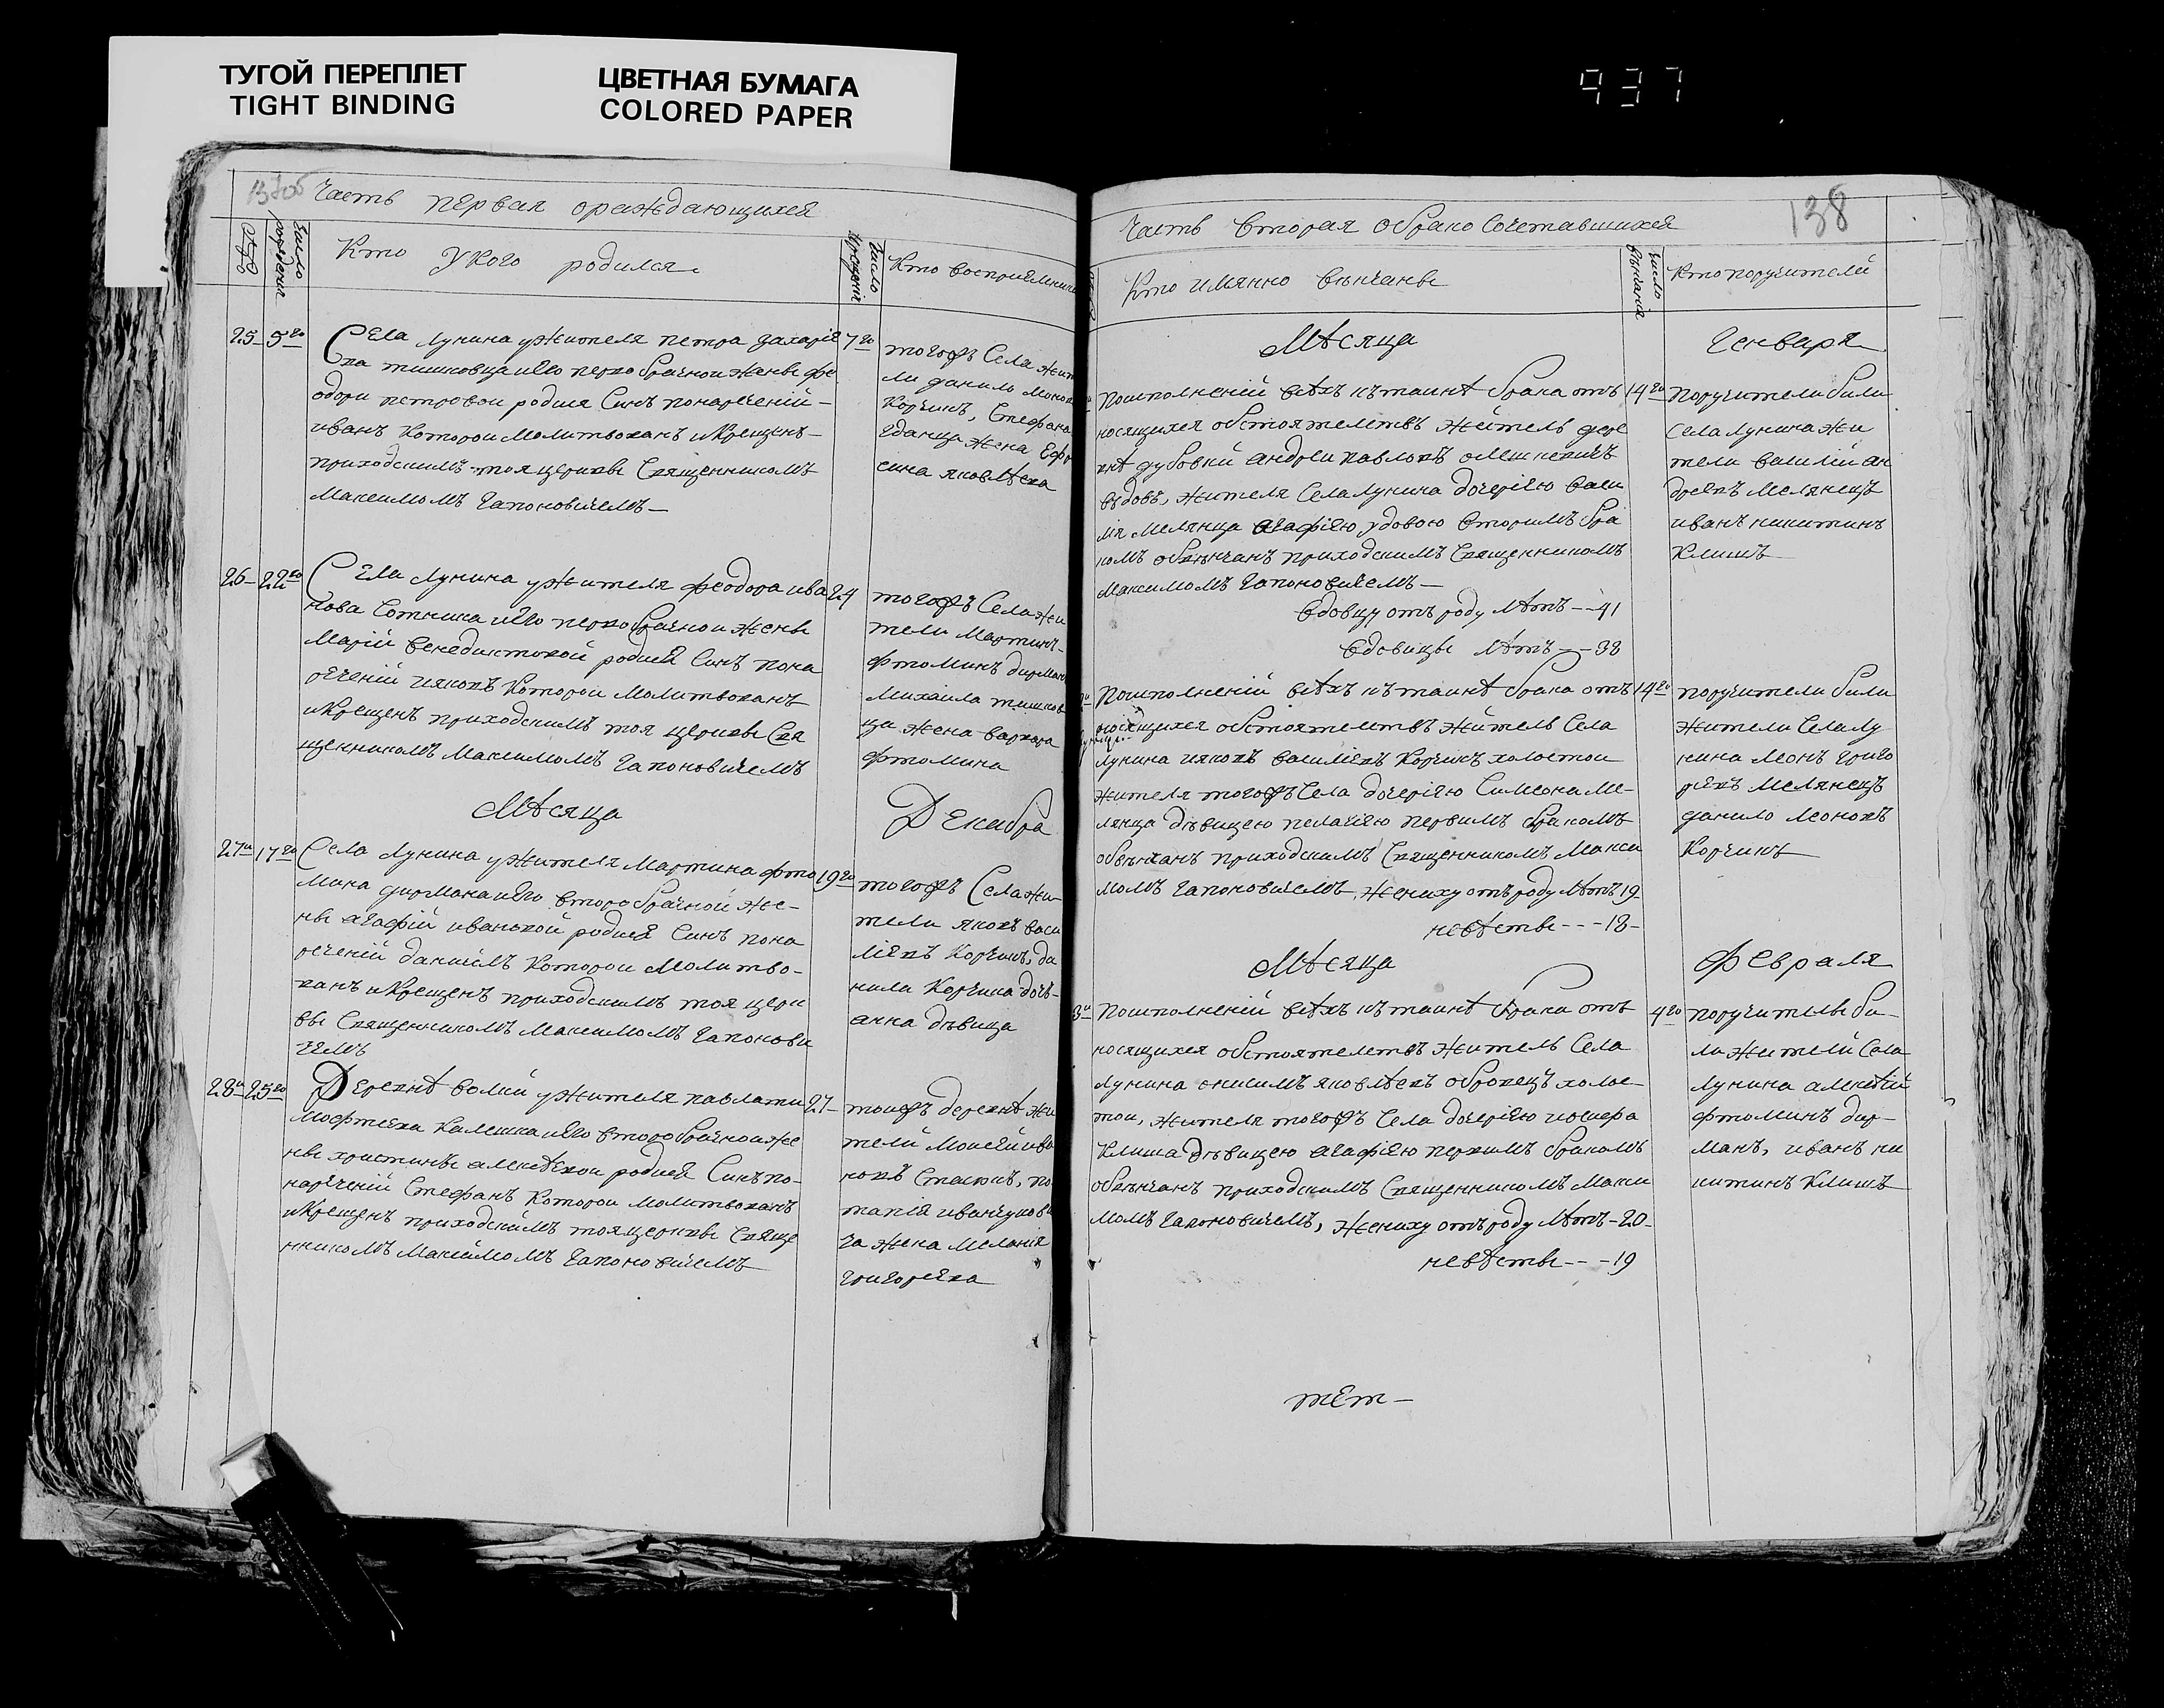 ТУГОЙ ПЕРЕПЛЕТ
TIGHT BINDING
ЦВЕТНАЯ БУМАГА
COLORED PAPER
937
137об
Часть первая ораждающихся
Число рождения
Кто укого родился
Число крещения
Кто восприемники
25
5го
Села Лунина ужителя петра захарие
ва тишковца иего первобрачной жены фе
одори петровой родися Синъ понареченій
иванъ которои молитвованъ икрещенъ
приходскимъ тоя церквы Священникомъ
Максимомъ Гапоновичемъ
7го
тогожъ Села жит
ли данило
Корчикъ, Стефана
жена Ефр
сина яковлѣва
26
22го
Села Лунина ужителя феодора ива
нова Сотника иего первобрачнои жены
Маріи Венедиктовой родися Синъ пона
реченій ияковъ которои молитвованъ
икрещенъ приходскимъ тоя церквы Свя
щенникомъ Максимомъ Гапоновичемъ
24
тогожъ Села жи
тели Мартинъ
фтоминъ дирман
Михаила тишков
ца жена варвара
фтомина
Мѣсяца
Декабра
27и
17го
Села Лунина ужителя Мартина фто
мина дирмана иего второбрачной же-
ны агафіи ивановой родися Синъ пона
реченій даниилъ которои молитво-
ванъ икрещенъ приходскимъ тоя церк
вы Священникомъ Максимомъ Гапонови
чемъ
19го
тогожъ Села жи
тели яковъ васи
лієвъ Корчикъ, да
нила Корчика дочь
анна дѣвица
28и
25го
Деревнѣ волки ужителя павла ти
мофтеева Калешка иего второбрачной же
ны христины алексѣевой родися Синъ по-
нареченій Стефанъ которои молитвованъ
икрещенъ приходскимъ тоя церквы Свяще
нникомъ Максимомъ Гапоновичемъ
27
тоижъ деревнѣ жи
тели Моисей ива
новъ Стасюкъ, по
тапія иванчукови
ча жена Меланія
григорева
138
Часть Вторая обрако Сочетавшихся
Кто имянно вѣнчаны
Число вѣнчанія
Кто поручители
Мѣсяца
Генваря
Поисполненій всѣхъ къ таинѣ брака отъ
носящихся обстоятелствъ житель дере
внѣ дубовки андреи павловъ олешкевичъ
вдовъ, жителя Села лунина дочеріею васи
лія Мелянца агафіею удовою вторимъ бра
комъ обвѣнчанъ приходскимъ Священникомъ
Максимомъ Гапоновичемъ
Вдовцу отъ роду лѣтъ -- 41
Вдовицы лѣтъ -- 38
14го
поручители били
Села лунина жи
тели василій ан
дреевъ Мелянецъ
иванъ никитинъ
Клишъ
Поисполненій всѣхъ къ таинѣ брака отъ
носящихся обстоятелствъ житель Села
Лунина ияковъ василіевъ Корчикъ холостои
жителя тогожъ Села дочеріею Симеона Ме-
лянца дѣвицею пелагіею первимъ бракомъ
обвѣнчанъ приходскимъ Священникомъ Макси
момъ Гапоновичемъ, жениху отъ роду лѣтъ 19
невѣсты --- 18-
14го
поручители били
жители Села Лу
нина леонъ григо
ревъ Мелянецъ
данило леоновъ
Корчикъ
Мѣсяца
Февраля
3и
Поисполненій всѣхъ къ таинѣ брака отъ
носящихся обстоятелствъ житель Села
Лунина онисимъ яковлѣвъ обровецъ холос-
тои, жителя тогожъ Села дочеріею иосифа
Клиша дѣвицею агафіею первимъ бракомъ
обвѣнчанъ приходскимъ Священникомъ Макси
момъ Гапоновичемъ, жениху отъ роду лѣтъ-20-
невѣсты --- 19
4го
поручителы би-
ли жители Села
Лунина алексѣй
фтоминъ дир-
манъ, иванъ ни
китинъ Клишъ